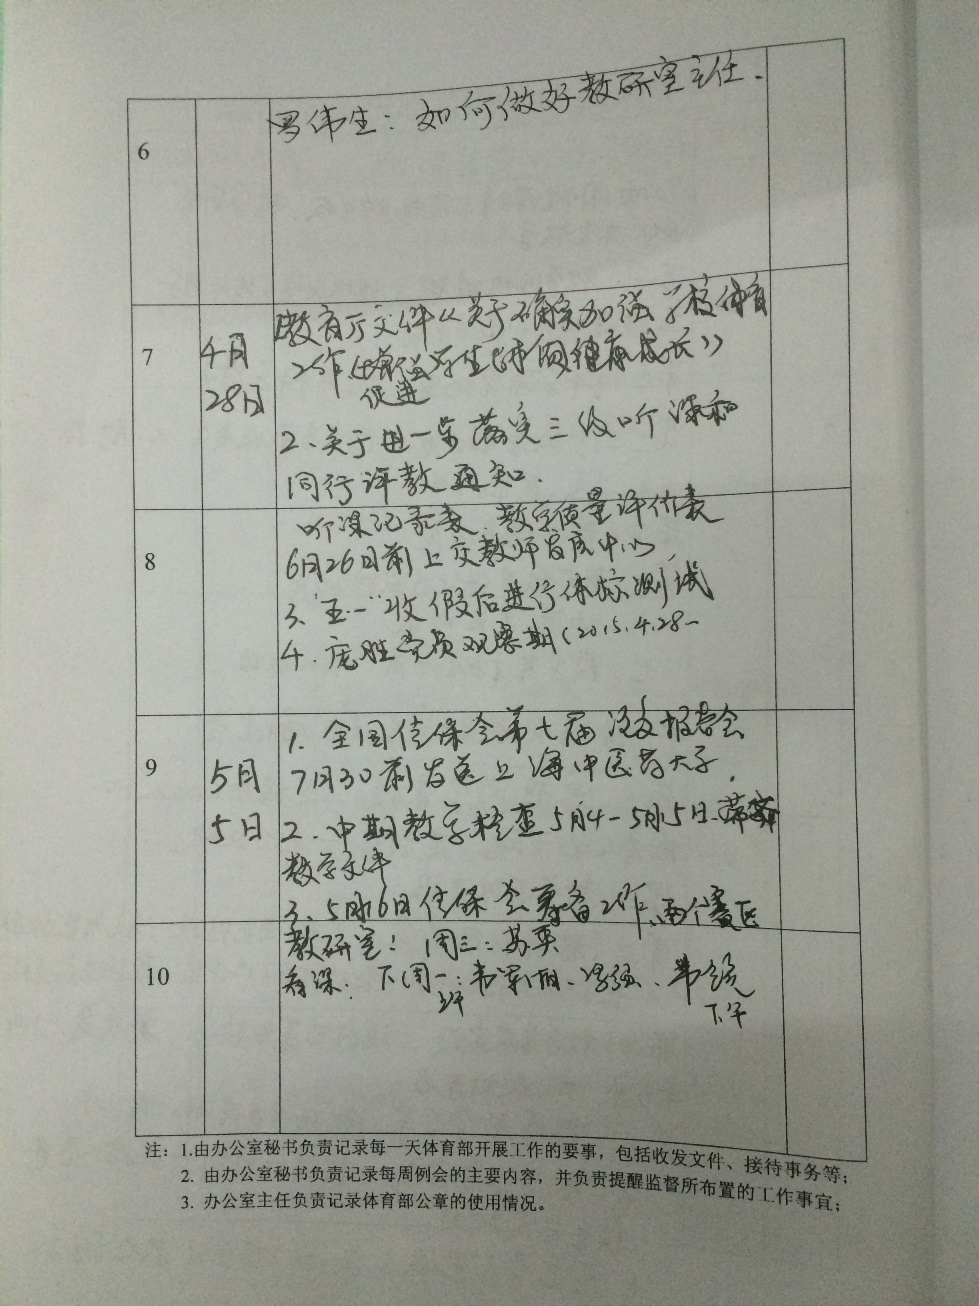 6
罗伟生：如何做好教研室主任.
7
4月
28日
教育厅文件《关于确实加强学校体育
工作 增强学生体质健康成长》
促进
2、关于进一步落实三级听课和
同行评教通知.
8
听课记录表、教学质量评估表
6月26日前上交教师发展中心
3、"五一"收假后进行体标测试
4.庞胜党员观察期(2015.4.28-
9
5月
5日
1. 全国体保会第七届论文报告会
7月30前发送上海中医药大学.
2. 中期教学检查5月4-5月15日.
教学文件
3、5月16日体保会筹备工作、两个赛区
10
教研室! 周三:
看课. 下周一:
上午
下午
注：1.由办公室秘书负责记录每一天体育部开展工作的要事，包括收发文件、接待事务等；
2. 由办公室秘书负责记录每周例会的主要内容，并负责提醒监督所布置的工作事宜；
3. 办公室主任负责记录体育部公章的使用情况。